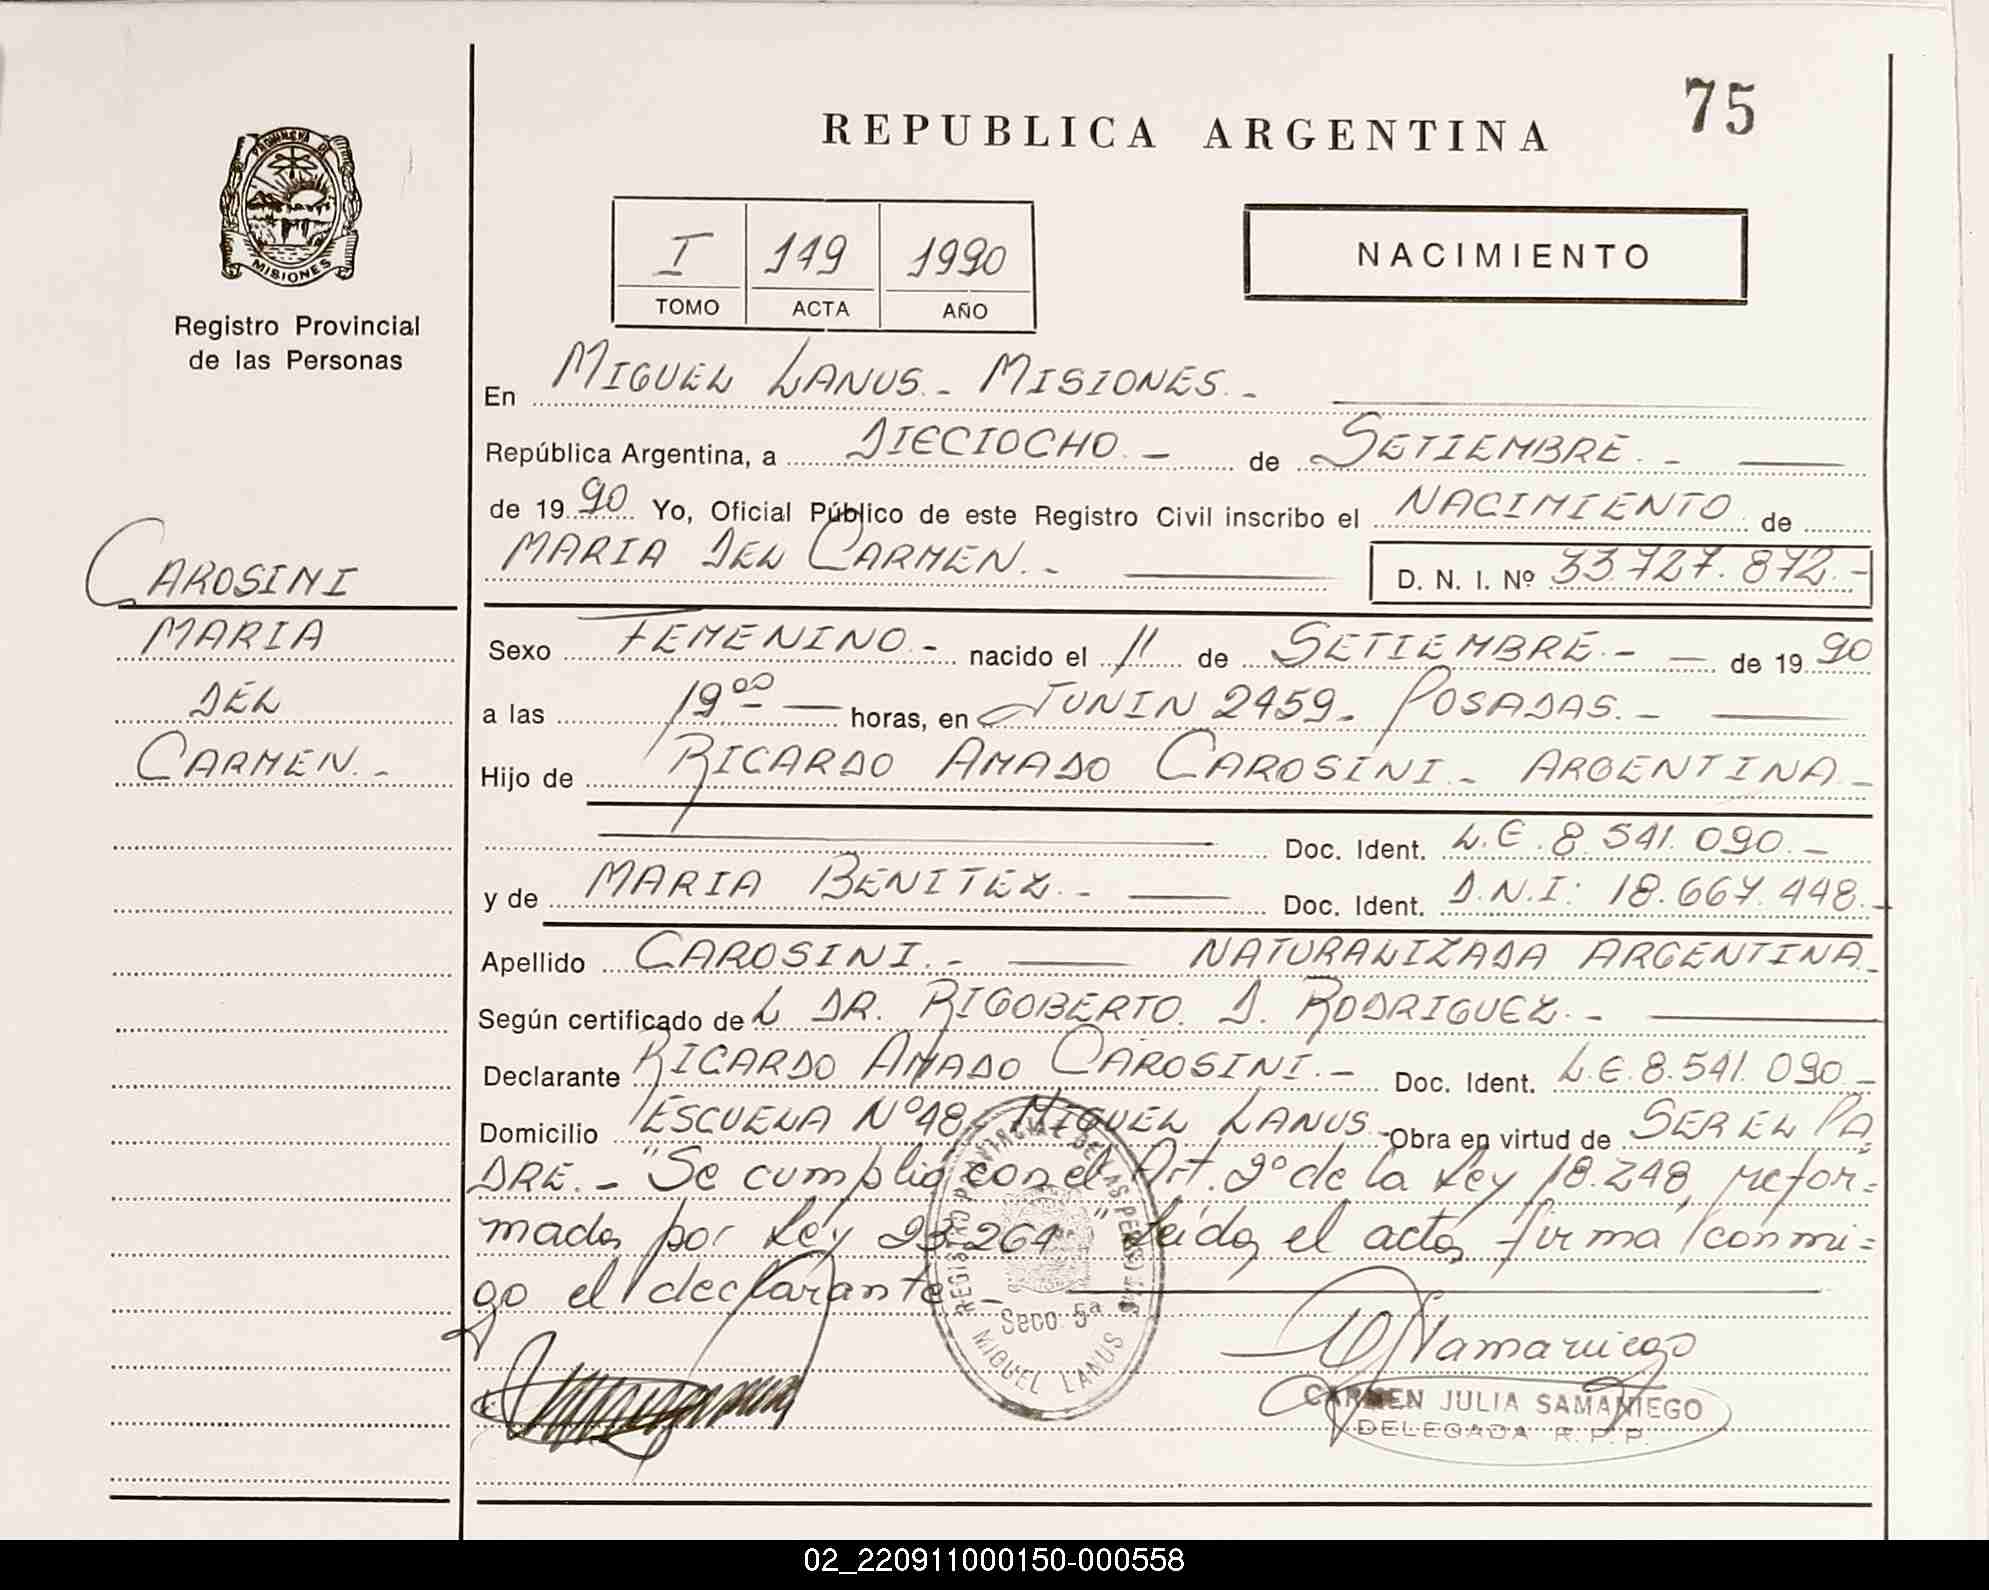 75
REPUBLICA ARGENTINA
PROVINCIA DE
MISIONES
Registro Provincial
de las Personas
I 149 1990
TOMO ACTA AÑO
NACIMIENTO
En MIGUEL LANUS.- MISIONES.-
República Argentina, a DIECIOCHO.- de SETIEMBRE.-
de 1990 Yo, Oficial Público de este Registro Civil inscribo el NACIMIENTO de
MARIA DEL CARMEN.- D. N. I. Nº 33.727.872.-
CAROSINI
MARIA
DEL
CARMEN.-
Sexo FEMENINO.- nacido el 11 de SETIEMBRE.- de 1990
a las 19 00 horas, en JUNIN 2459.- POSADAS.-
Hijo de RICARDO AMADO CAROSINI.- ARGENTINA.-
Doc. Ident. L.E. 8.541.090.-
y de MARIA BENITEZ.- Doc. Ident. D.N.I: 18.667.448.-
Apellido CAROSINI.- NATURALIZADA ARGENTINA.-
Según certificado de L DR. RIGOBERTO. D. RODRIGUEZ.-
Declarante RICARDO AMADO CAROSINI.- Doc. Ident. L.E. 8.541.090.-
Domicilio ESCUELA Nº 48 MIGUEL LANUS.- Obra en virtud de SER EL PA
DRE.- "Se cumplió con el Art. 2º de la Ley 18.248, refor=
mada por Ley 23.264" Leída el acta firma conmi=
go el declarante.-
REGISTRO PROVINCIAL DE LAS PERSONAS
Secc 5ª
MIGUEL LANUS
CARMEN JULIA SAMANIEGO
DELEGADA R.P.P.
02_220911000150-000558